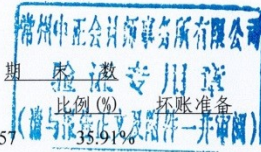 常州中正会计师事务所有限公司
期 末 数
验证专用章
比例(%) 坏账准备
(请与报告正文及附件一并审阅)
57 35.91%